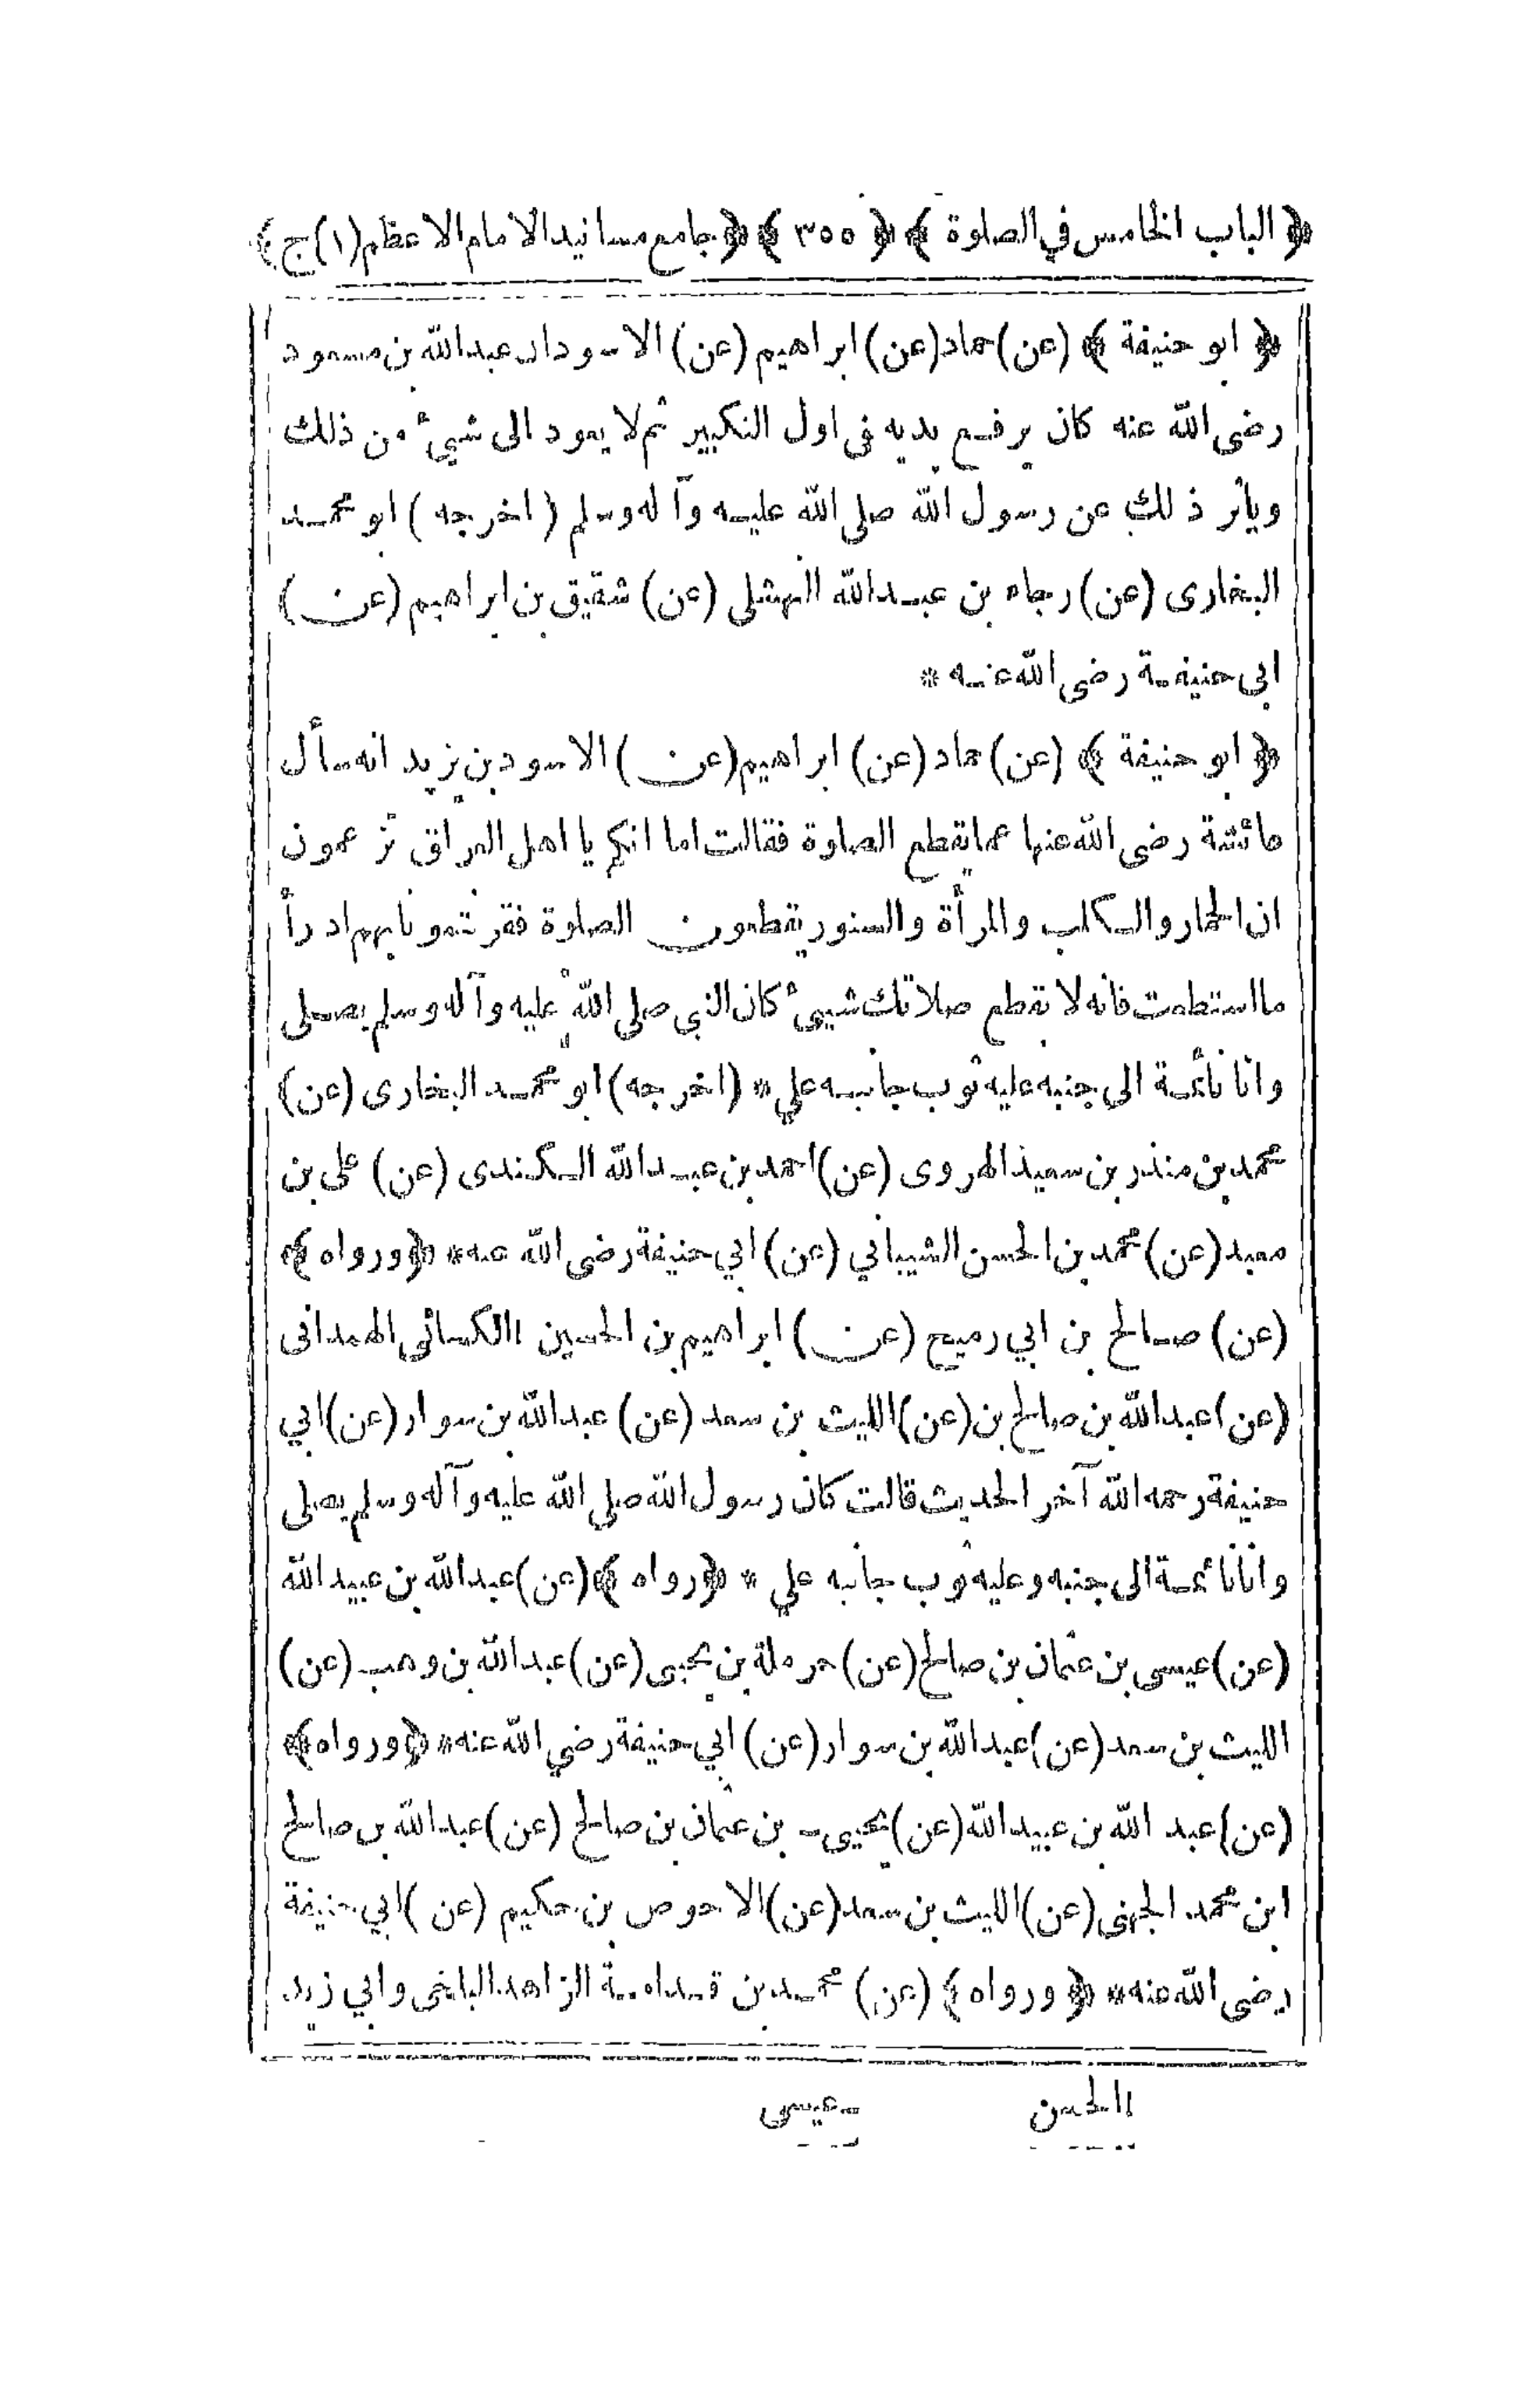 ﴿ الباب الخامس في الصلوة ﴾ ﴿ ٣٥٥ ﴾ ﴿ جامع مسانيد الامام الاعظم (١) ج ﴾
﴿ ابو حنيفة ﴾ (عن) حماد (عن) ابراهيم (عن) الاسود ان عبدالله بن مسعود
رضى الله عنه كان يرفع يديه فى اول التكبير ثم لا يعود الى شيئ من ذلك
ويأثر ذلك عن رسول الله صلى الله عليه وآله وسلم ( اخرجه ) ابو محمد
البخارى (عن) رجاء بن عبدالله النهشلى (عن) شقيق بن ابراهيم (عن)
ابى حنيفة رضى الله عنه *
﴿ ابو حنيفة ﴾ (عن) حماد (عن) ابراهيم (عن) الاسود بن يزيد انه سأل
عائشة رضى الله عنها عما يقطع الصلوة فقالت اما انكم يا اهل العراق تزعمون
ان الحمار والكلب والمرأة والسنور يقطعون الصلوة فقرنتمونا بهم ادرأ
ما استطعت فانه لا يقطع صلاتك شيئ كان النبي صلى الله عليه وآله وسلم يصلى
وانا نائمة الى جنبه عليه ثوب جانبه علي * (اخرجه) ابو محمد البخارى (عن)
محمد بن منذر بن سعيد الهروى (عن) احمد بن عبدالله الكندى (عن) على بن
معبد (عن) محمد بن الحسن الشيباني (عن) ابي حنيفة رضى الله عنه * ﴿ ورواه ﴾
(عن) صالح بن ابي رميح (عن) ابراهيم بن الحسين ١١ الكسائى الهمدانى
(عن) عبدالله بن صالح بن (عن) الليث بن سعد (عن) عبدالله بن سوار (عن) ابي
حنيفة رحمه الله آخر الحديث قالت كان رسول الله صلى الله عليه وآله وسلم يصلى
وانا نائمة الى جنبه وعليه ثوب جانبه علي * ﴿ رواه ﴾ (عن) عبدالله بن عبيدالله
(عن) عيسى بن عثمان بن صالح (عن) حرملة بن يحيى (عن) عبدالله بن وهب (عن)
الليث بن سعد (عن) عبدالله بن سوار (عن) ابي حنيفة رضي الله عنه * ﴿ ورواه ﴾
(عن) عبد الله بن عبيدالله (عن) يحيى بن عثمان بن صالح (عن) عبدالله بن صالح
ابن محمد الجهنى (عن) الليث بن سعد (عن) الاحوص بن حكيم (عن) ابي حنيفة
رضى الله عنه * ﴿ ورواه ﴾ (عن) محمد بن قدامة الزاهد البلخى وابي زيد
١١ الحسن عيسى